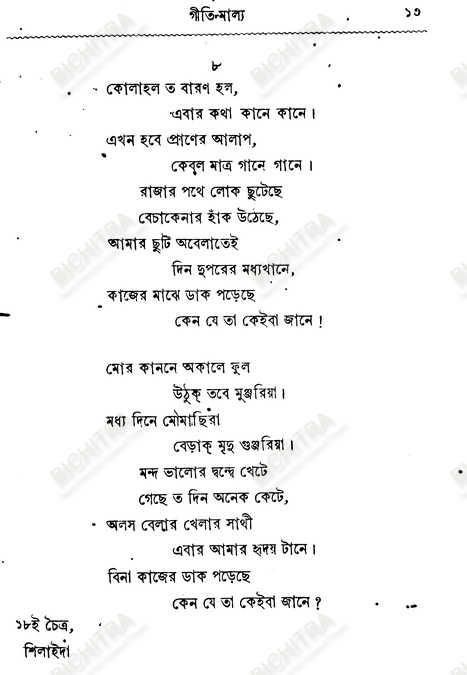 গীতি-মাল্য ১৩
৮
কোলাহল ত বারণ হল,
এবার কথা কানে কানে।
এখন হবে প্রাণের আলাপ,
কেবল মাত্র গানে গানে।
রাজার পথে লোক ছুটেছে
বেচাকেনার হাঁক উঠেছে,
আমার ছুটি অবেলাতেই
দিন দুপরের মধ্যখানে,
কাজের মাঝে ডাক পড়েছে
কেন যে তা কেইবা জানে!
মোর কাননে অকালে ফুল
উঠুক্ তবে মুঞ্জরিয়া।
মধ্য দিনে মৌমাছিরা
বেড়াক্ মৃদু গুঞ্জরিয়া।
মন্দ ভালোর দ্বন্দ্বে খেটে
গেছে ত দিন অনেক কেটে,
অলস বেলার খেলার সাথী
এবার আমার হৃদয় টানে।
বিনা কাজের ডাক পড়েছে
কেন যে তা কেইবা জানে?
১৮ই চৈত্র,
শিলাইদা
BICHITRA
BICHITRA
BICHITRA
BICHITRA
BICHITRA
BICHITRA
BICHITRA
BICHITRA
BICHITRA